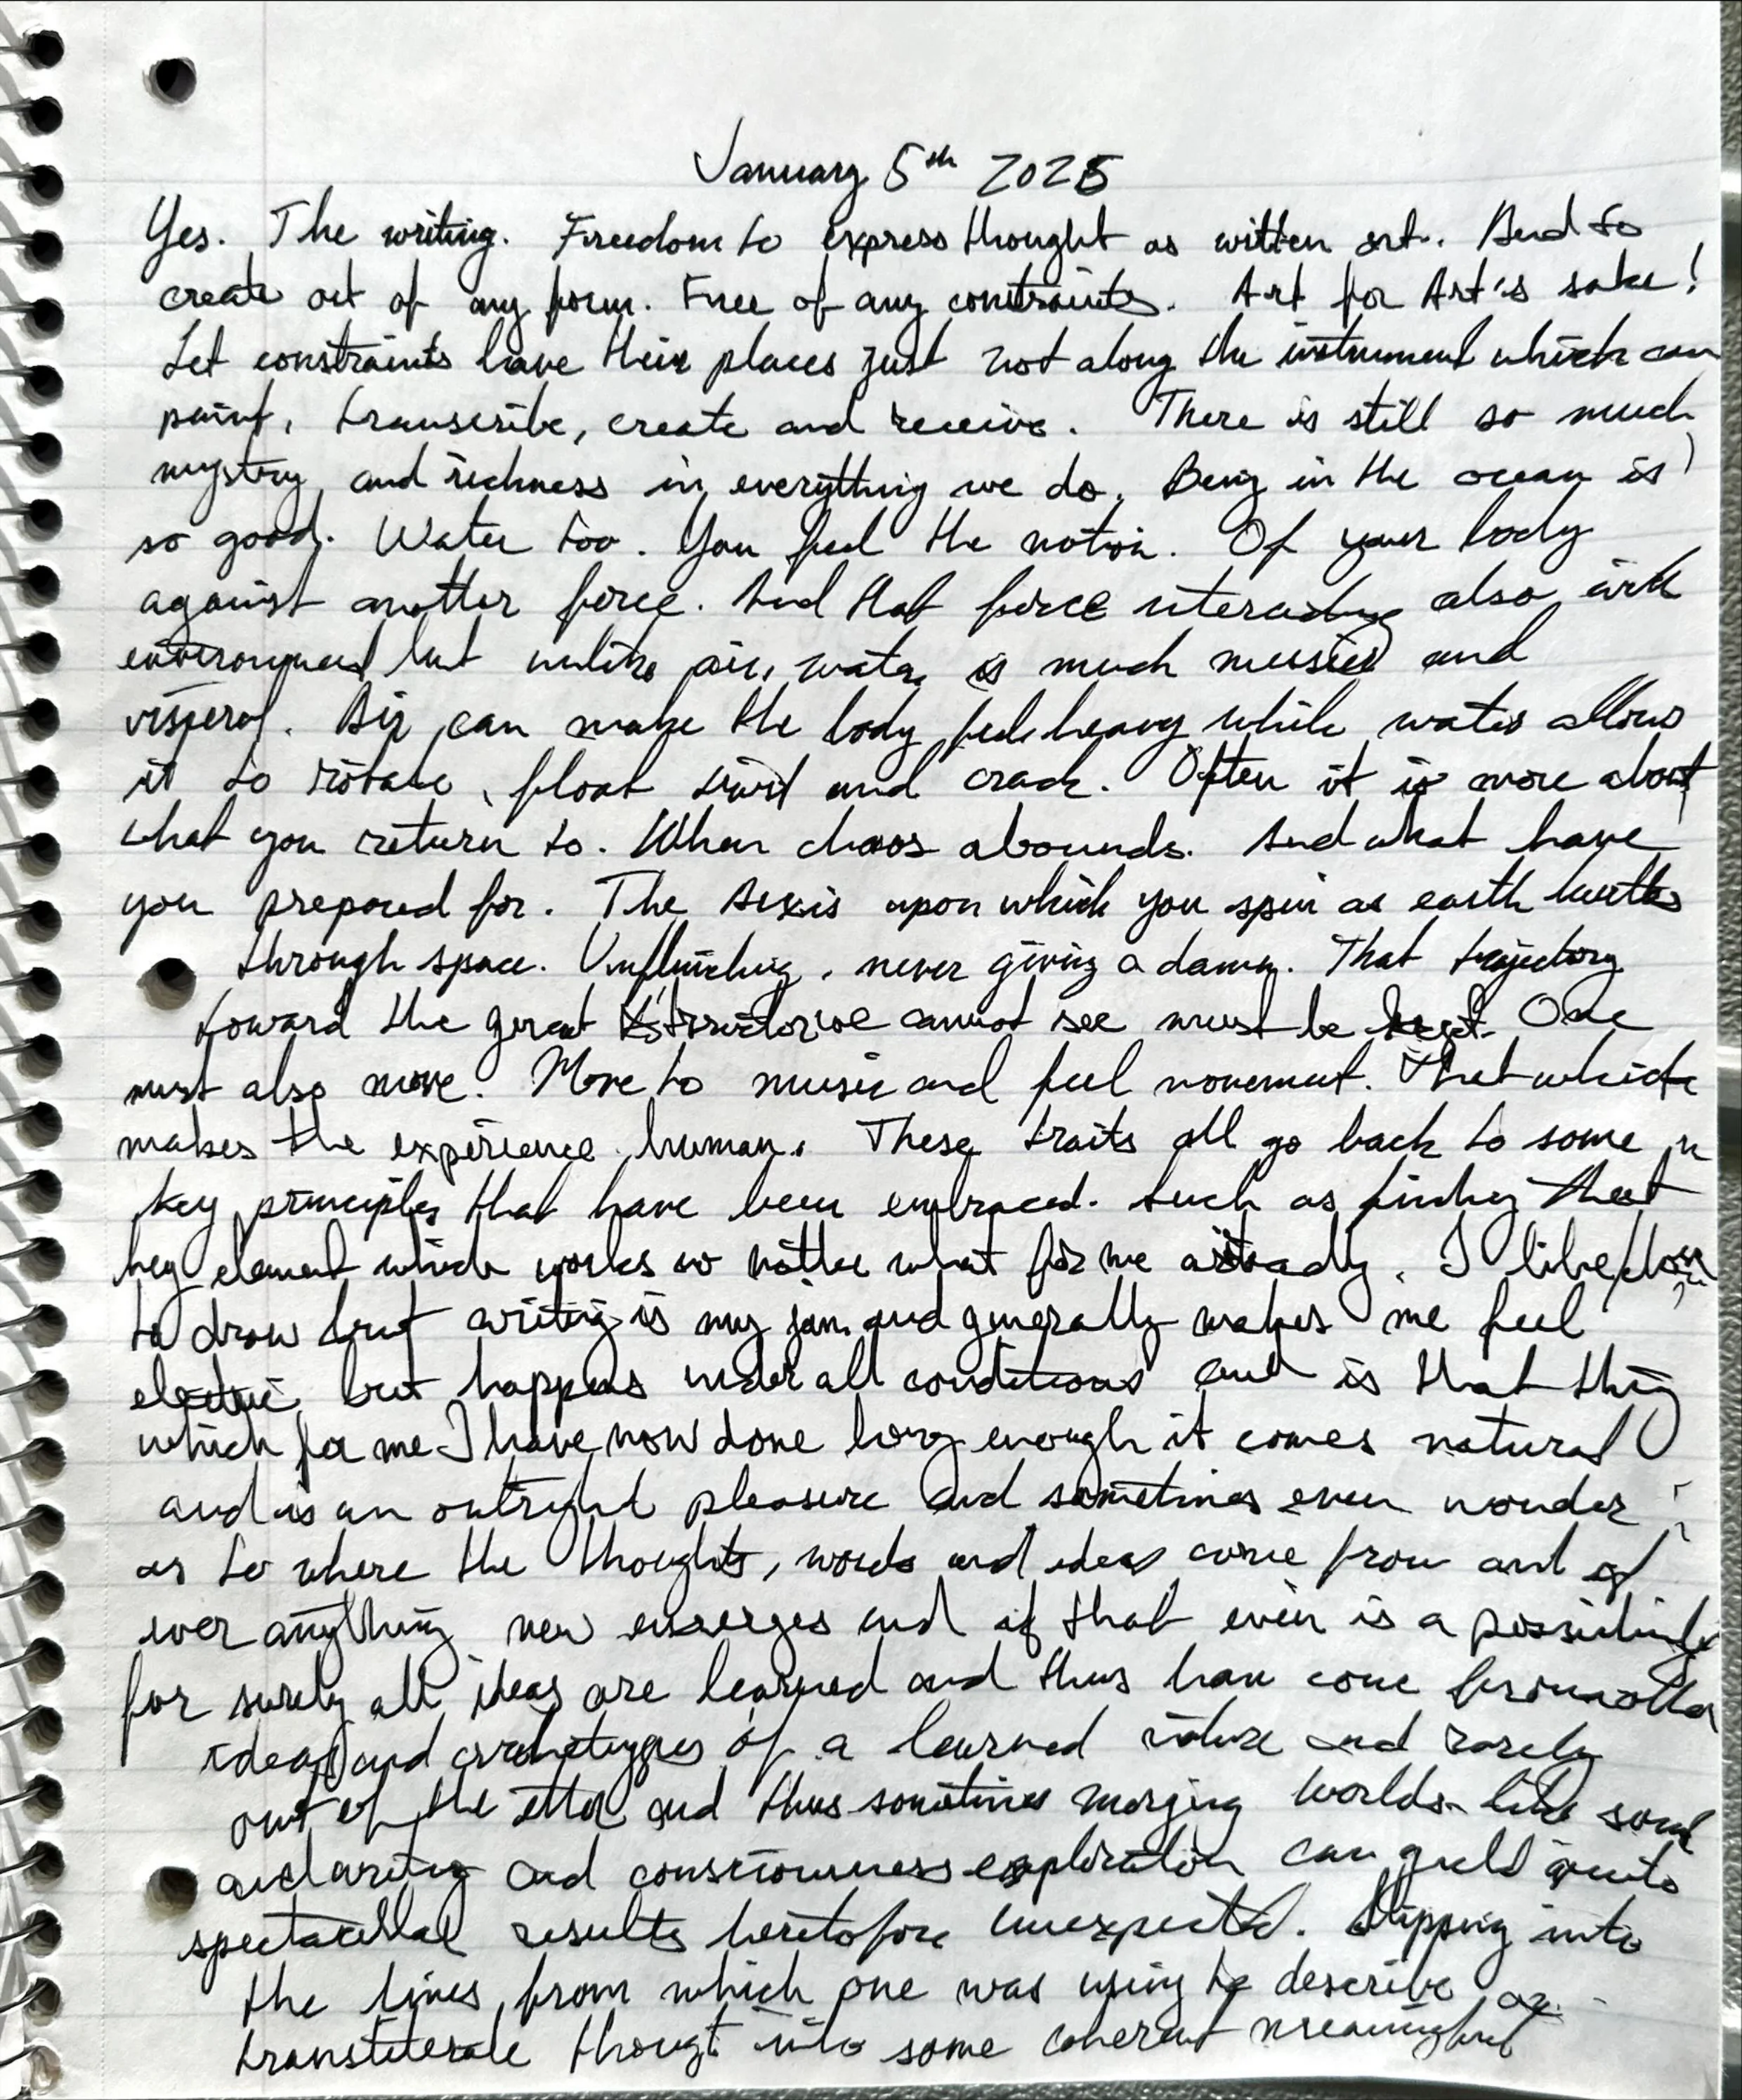 January 5th 2025
Yes. The writing. Freedom to express thought as witten art. And to
create out of any form. Free of any constraints. Art for Art's sake!
Let constraints have their places just not along the instrument which can
paint, transcribe, create and receive. There is still so much
mystery and richness in everything we do. Being in the ocean is
so good. Water too. You feel the motion. Of your body
against another force. And that force also with
environment but unlike air, water is much and
visperal. Air can make the body feel heavy while water allows
it to rotate, float and crack. Often it is more about
what you return to. When chaos abounds. And what have
you prepared for. The Axis upon which you spin as earth hurtles
through space. Unflinching, never giving a damn. That trajectory
toward the great cannot see must be kept. One
must also move. Move to music and feel movement. That which
makes the experience human. These traits all go back to some
key principles that have been embraced. Such as finding that
key element which works no matter what for me already. I like
to draw but writing is my jam and generally makes me feel
electric but happens under all conditions and is that thing
which for me I have now done long enough it comes natural
and is an outright pleasure and sometimes even wonder
as to where the thoughts, words and ideas come from and if
ever anything new emerges and if that even is a possibility
for surely all ideas are learned and thus have come from other
ideas and archetypes of a learned nature and rarely
out of the ether and thus sometimes merging worlds like
and writing and consciousness exploration can yield quite
results heretofore unexpected. Slipping into
the lines from which one was using to describe or
transliterate thougt into some coherent meaningful